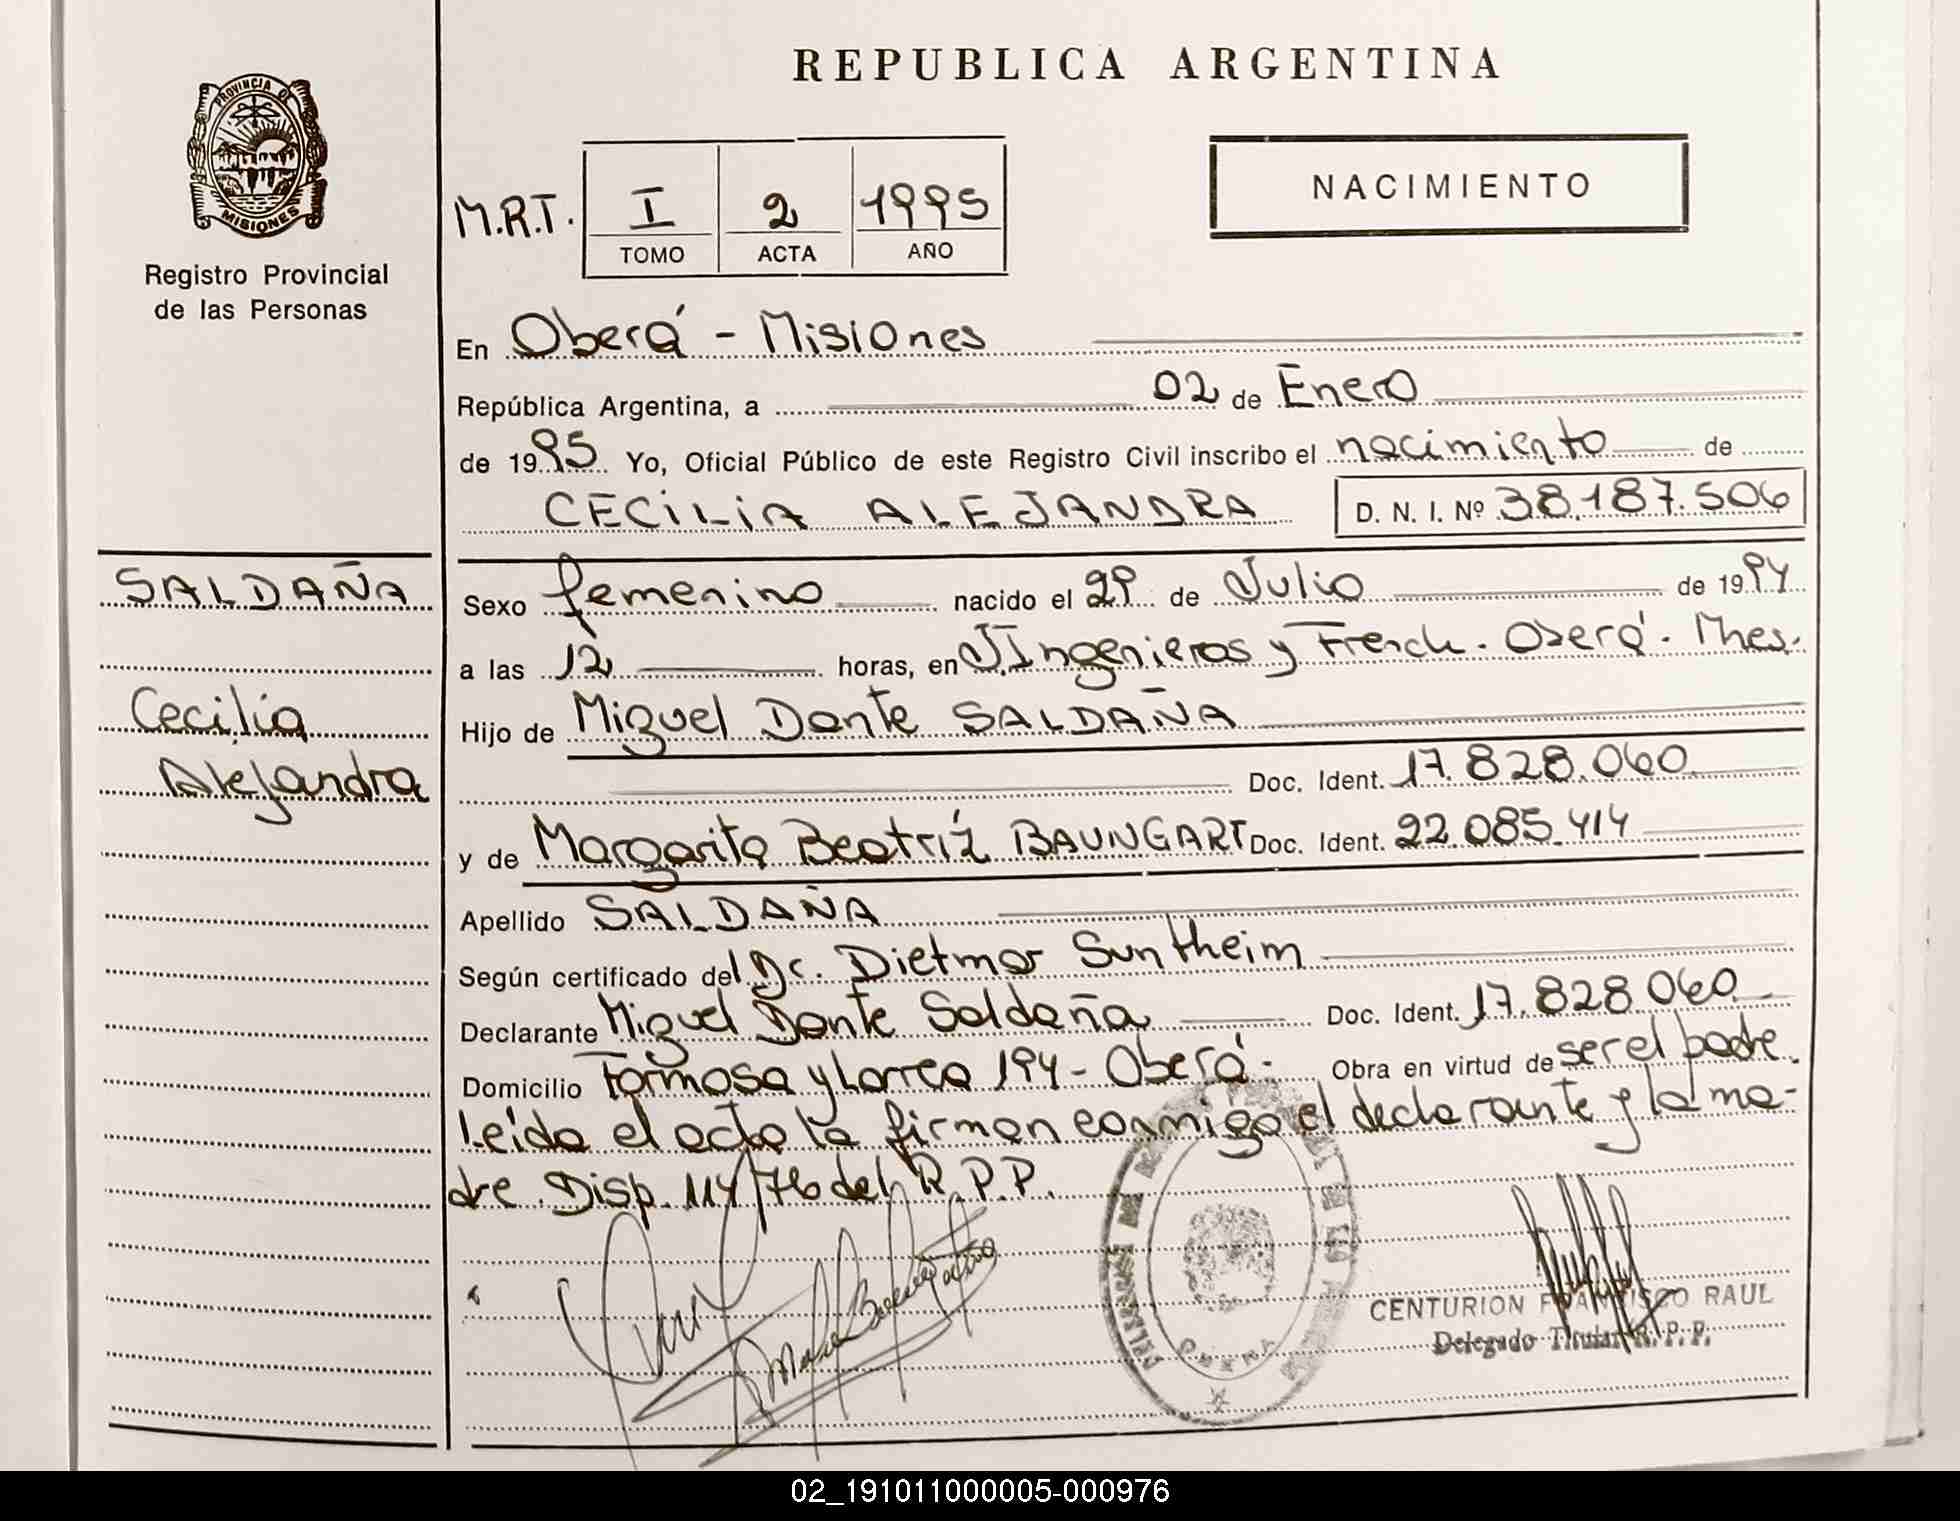 REPUBLICA ARGENTINA
PROVINCIA DE
MISIONES
Registro Provincial
de las Personas
NACIMIENTO
M.R.T. I 2 1995
TOMO ACTA AÑO
En Oberá - Misiones
República Argentina, a 02 de Enero
de 1995 Yo, Oficial Público de este Registro Civil inscribo el nacimiento de
CECILIA ALEJANDRA D. N. I. Nº 38.187.506
SALDAÑA
Cecilia
Alejandra
Sexo femenino nacido el 29 de Julio de 1994
a las 12 horas, en J.Ingenieros y French. Oberá. Mnes.
Hijo de Miguel Dante SALDAÑA
Doc. Ident. 17.828.060
y de Margarita Beatríz BAUNGART Doc. Ident. 22.085.414
Apellido SALDAÑA
Según certificado del Dr. Dietmar Suntheim
Declarante Miguel Dante Saldaña Doc. Ident. 17.828.060
Domicilio Formosa y Larrea 194 - Oberá. Obra en virtud de ser el padre.
Leída el acta la firman conmigo el declarante y la ma-
dre. Disp. 114/76 del R.P.P.
OBERA
CENTURION FRANCISCO RAUL
Delegado Titular R.P.P.
02_191011000005-000976